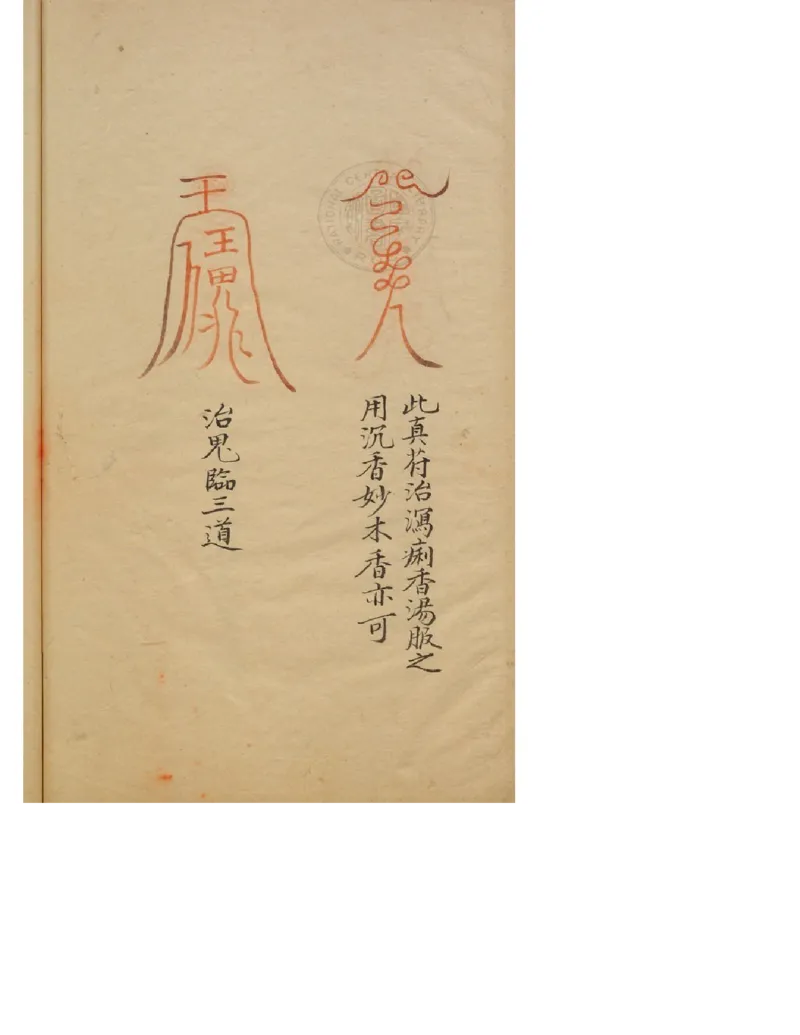 此真符治瀉痢香湯服之
用沉香妙木香亦可
治鬼臨三道